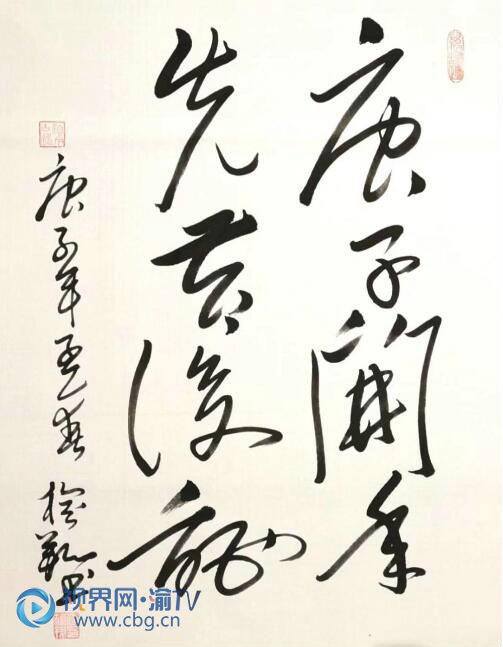 庚子開年
先苦後甜
庚子年孟春 书
视界网·渝TV
www.cbg.cn